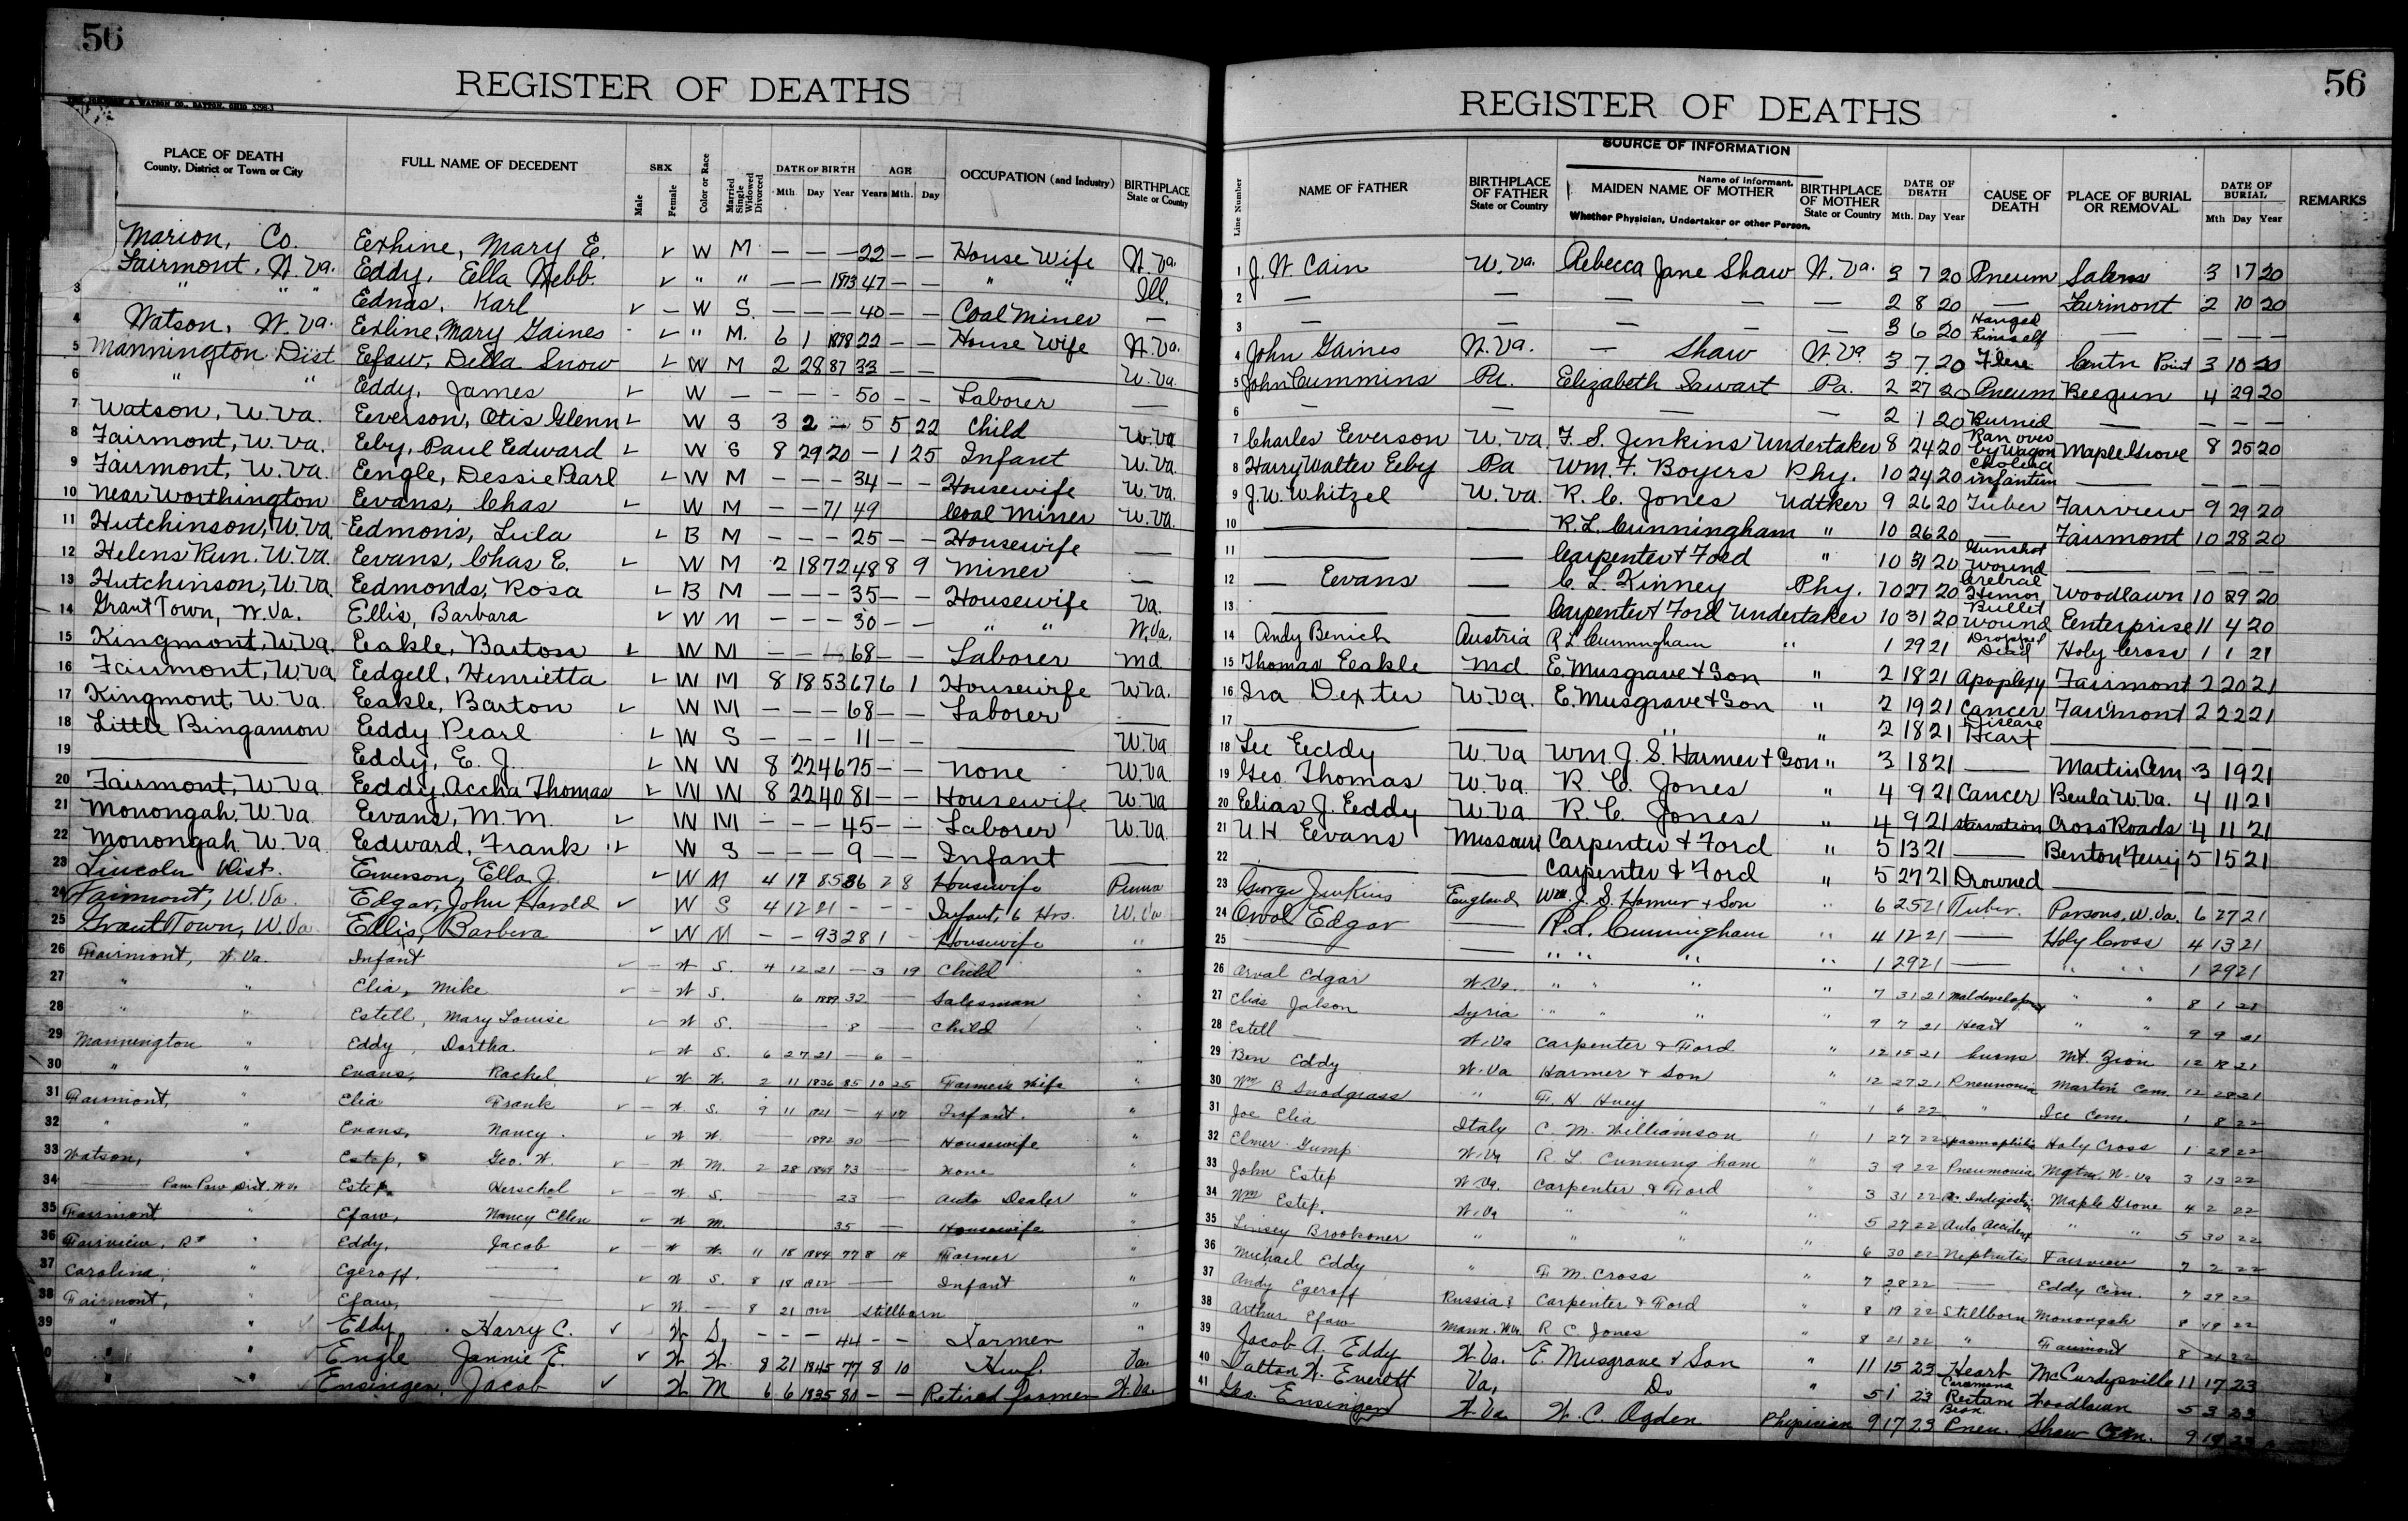 56
REGISTER OF DEATHS
PLACE OF DEATH County, District or Town or City | FULL NAME OF DECEDENT | SEX Male Female | Color or Race | Married Single Widowed Divorced | DATE OF BIRTH Mth Day Year | AGE Years Mth. Day | OCCUPATION (and Industry) | BIRTHPLACE State or Country
Marion, Co. Eexhine, Mary E. ✓ W M — — — 22 — — House Wife W. Va.
Fairmont, W. Va. Eddy, Ella Webb. ✓ " " — — 1873 47 — — " " Ill.
3 " " " Ednas, Karl ✓ — W S. — — — 40 — — Coal Miner —
4 Watson, W. Va. Eexline, Mary Gaines ✓ " M. 6 1 1898 22 — — House Wife W. Va.
5 Mannington Dist Eefaw, Della Snow ✓ W M 2 28 87 33 — — W. Va.
6 " " Eddy, James ✓ W — — — — 50 — — Laborer —
7 Watson, W. Va. Eeverson, Otis Glenn ✓ W S 3 2 — 5 5 22 Child W. Va
8 Fairmont, W. Va. Eeby, Paul Edward ✓ W S 8 29 20 — 1 25 Infant W. Va.
9 Fairmont, W. Va. Eengle, Dessie Pearl ✓ W M — — — 34 — — Housewife W. Va.
10 Near Worthington Eevans, Chas ✓ W M — — 71 49 Coal Miner W. Va.
11 Hutchinson, W. Va. Eedmons, Lula ✓ B M — — — 25 — — Housewife —
12 Helens Run. W. Va. Eevans, Chas E. ✓ W M 2 18 72 48 8 9 Miner —
13 Hutchinson, W. Va. Eedmonds, Rosa ✓ B M — — — 35 — — Housewife Va.
14 Grant Town, W. Va. Ellis, Barbara ✓ W M — — — 30 — — " " W. Va.
15 Kingmont, W. Va. Eeakle, Barton ✓ W M — — 68 — — Laborer Md.
16 Fairmont, W. Va. Eedgell, Henrietta ✓ W M 8 18 53 67 6 1 Housewife W. Va.
17 Kingmont, W. Va. Eeakle, Barton ✓ W M — — — 68 — — Laborer —
18 Little Bingamon Eeddy Pearl ✓ W S — — — 11 — — — W. Va
19 — Eeddy, E. J. ✓ W W 8 22 46 75 — — None W. Va.
20 Fairmont, W. Va Eeddy, Accha Thomas ✓ W W 8 22 40 81 — — Housewife W. Va
21 Monongah, W. Va Eevans, M. M. ✓ W M — — — 45 — — Laborer W. Va.
22 Monongah, W. Va Eedward, Frank ✓ W S — — — 9 — — Infant —
23 Lincoln Dist. Emerson, Ella J. ✓ W M 4 17 85 36 2 8 Housewife Penna
24 Fairmont, W. Va. Edgar, John Harold ✓ W S 4 12 21 — — — Infant, 6 Hrs. W. Va
25 Grant Town, W. Va Ellis, Barbera ✓ W M — — 93 28 1 — Housewife "
26 Fairmont, W. Va. Infant ✓ — W S. 4 12 21 — 3 19 Child "
27 " " Elia, Mike ✓ — W S. 6 1889 32 — Salesman "
28 " " Estell, Mary Louise ✓ W S. — — — 8 — Child "
29 Mannington " Eddy, Dortha. ✓ W S. 6 27 21 — 6 — "
30 " " Evans, Rachel. ✓ W W. 2 11 1836 85 10 25 Farmer's Wife "
31 Fairmont, " Elia Frank ✓ — W. S. 9 11 1921 — 4 17 Infant. "
32 " " Evans, Nancy. ✓ W W. — 1892 30 — Housewife "
33 Watson, " Estep, Geo. W. ✓ — W M. 2 28 1849 73 — None "
34 — Paw Paw Dist. W. Va Estep, Herschel ✓ — W S. — — 23 — Auto Dealer "
35 Fairmont " Efaw, Nancy Ellen ✓ W M. 35 — Housewife "
36 Fairview, R# " Eddy, Jacob ✓ — W W. 11 15 1844 77 8 14 Farmer "
37 Carolina, " Egeroff. — ✓ W S. 8 18 1922 — Infant "
38 Fairmont, " Efaw, — ✓ W. — 8 21 1922 Stillborn "
39 " " Eddy Harry C. ✓ W S. — — — 44 — — Farmer "
0 " " Engle Jannie E. ✓ W W. 8 21 1845 77 8 10 Hwf. Va.
" " Ensinger, Jacob ✓ W M 6 6 1835 80 — — Retired Farmer W. Va.
56
REGISTER OF DEATHS
Line Number | NAME OF FATHER | BIRTHPLACE OF FATHER State or Country | SOURCE OF INFORMATION Name of Informant. MAIDEN NAME OF MOTHER Whether Physician, Undertaker or other Person. | BIRTHPLACE OF MOTHER State or Country | DATE OF DEATH Mth. Day Year | CAUSE OF DEATH | PLACE OF BURIAL OR REMOVAL | DATE OF BURIAL Mth Day Year | REMARKS
1 J. W. Cain W. Va. Rebecca Jane Shaw W. Va. 3 7 20 Pneum Salem 3 17 20
2 — — — — — 2 8 20 — Fairmont 2 10 20
3 — — — — — 3 6 20 Hanged himself — — — —
4 John Gaines W. Va. — Shaw W. Va 3 7 20 Flue Centn Point 3 10 20
5 John Cummins Pa. Elizabeth Sawart Pa. 2 27 20 Pneum Beegun 4 29 20
6 — — — — 2 1 20 Burned — — — —
7 Charles Eeverson W. Va. F. S. Jenkins Undertaker 8 24 20 Ran over by Wagon Maple Grove 8 25 20
8 Harry Walter Eeby Pa Wm. F. Boyers Phy. 10 24 20 Cholera infantum — — — —
9 J. W. Whitzel W. Va. R. C. Jones Udtker 9 26 20 Tuber Fairview 9 29 20
10 — — R. L. Cunningham " 10 26 20 — Fairmont 10 28 20
11 — — Carpenter & Ford " 10 31 20 Gunshot Wound — — — —
12 — Eevans — C. L. Kinney Phy. 10 27 20 Crebral Hemor Woodlawn 10 29 20
13 — — Carpenter & Ford Undertaker 10 31 20 Bullet Wound Eenterprise 11 4 20
14 Andy Benich Austria R L Cunningham " 1 29 21 Dropped Dead Holy Cross 1 1 21
15 Thomas Eeakle Md E. Musgrave & Son " 2 18 21 Apoplexy Fairmont 2 20 21
16 Ira Dexter W. Va. E. Musgrave & Son " 2 19 21 Cancer Fairmont 2 22 21
17 — — " " 2 18 21 Disease Heart — —
18 Lee Eeddy W. Va Wm. J. S. Harmer & Son " 3 18 21 — Martin Cem 3 19 21
19 Geo. Thomas W. Va. R. C. Jones " 4 9 21 Cancer Beula W. Va. 4 11 21
20 Elias J. Eeddy W. Va R. C. Jones " 4 9 21 Starvation Cross Roads 4 11 21
21 U. H Eevans Missouri Carpenter & Ford " 5 13 21 — Benton Ferry 5 15 21
22 — — Carpenter & Ford " 5 27 21 Drowned — —
23 George Jenkins England Wm. J. S. Harmer & Son " 6 25 21 Tuber. Parsons, W. Va. 6 27 21
24 Orval Edgar — R. L. Cunningham " 4 12 21 — Holy Cross 4 13 21
25 — — " " " " 1 29 21 — " " 1 29 21
26 Arval Edgar W. Va. " " " " 7 31 21 " " 8 1 21
27 Elias Jalson Syria " " " " 9 7 21 Heart " " 9 9 21
28 Estell — W. Va Carpenter & Ford " 12 15 21 burns Mt. Zion 12 18 21
29 Ben Eddy W. Va Harmer & Son " 12 27 21 Pneumonia Martin Cem. 12 28 21
30 Wm B Snodgrass " F. H Huey " 1 6 22 " Ice Cem. 1 8 22
31 Joe Elia Italy C. M. Williamson " 1 27 22 Spasmophilia Holy Cross 1 29 22
32 Elmer Gump W. Va R L Cunningham " 3 9 22 Pneumonia Mgtn. W. Va 3 13 22
33 John Estep W. Va. Carpenter & Ford " 3 31 22 Ac. Indigestion Maple Grove 4 2 22
34 Wm Estep. W. Va " " " 5 27 22 Auto Accident " " 5 30 22
35 Linsey Brookoner " " " " 6 30 22 Nephritis Fairview 7 2 22
36 Michael Eddy " F M. Cross " 7 28 22 — Eddy Cem. 7 29 22
37 Andy Egeroff Russia? Carpenter & Ford " 8 19 22 Stillborn Monongah 8 22
38 Arthur Efaw Mann. W. Va. R C. Jones " 8 21 22 " Fairmont 8 21 22
39 Jacob A. Eddy W. Va. E. Musgrave & Son " 11 15 23 Heart McCurdysville 11 17 23
40 Tatton W. Everett Va. Do " 5 1 23 Carcinoma Rectum Woodlawn 5 3 23
41 Geo. Ensinger W. Va W. C. Ogden Physician 9 17 23 Bron. Pneu. Shaw Cem. 9 19 23